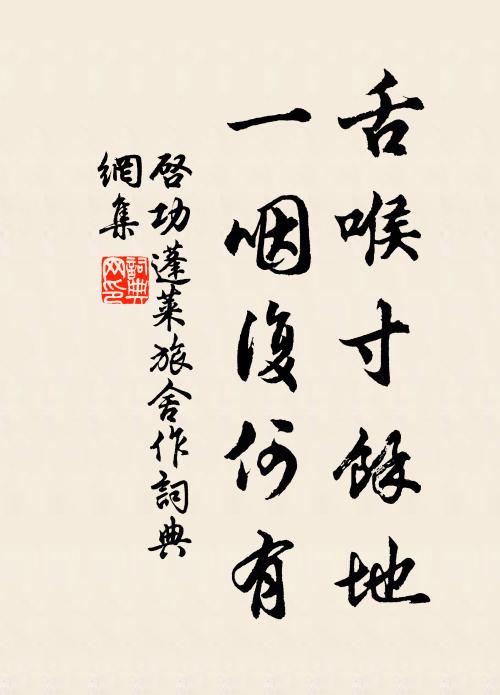 舌喉寸餘地
一咽復何有
啓功蓬萊旅舍作詞典
網集
詞典
网印